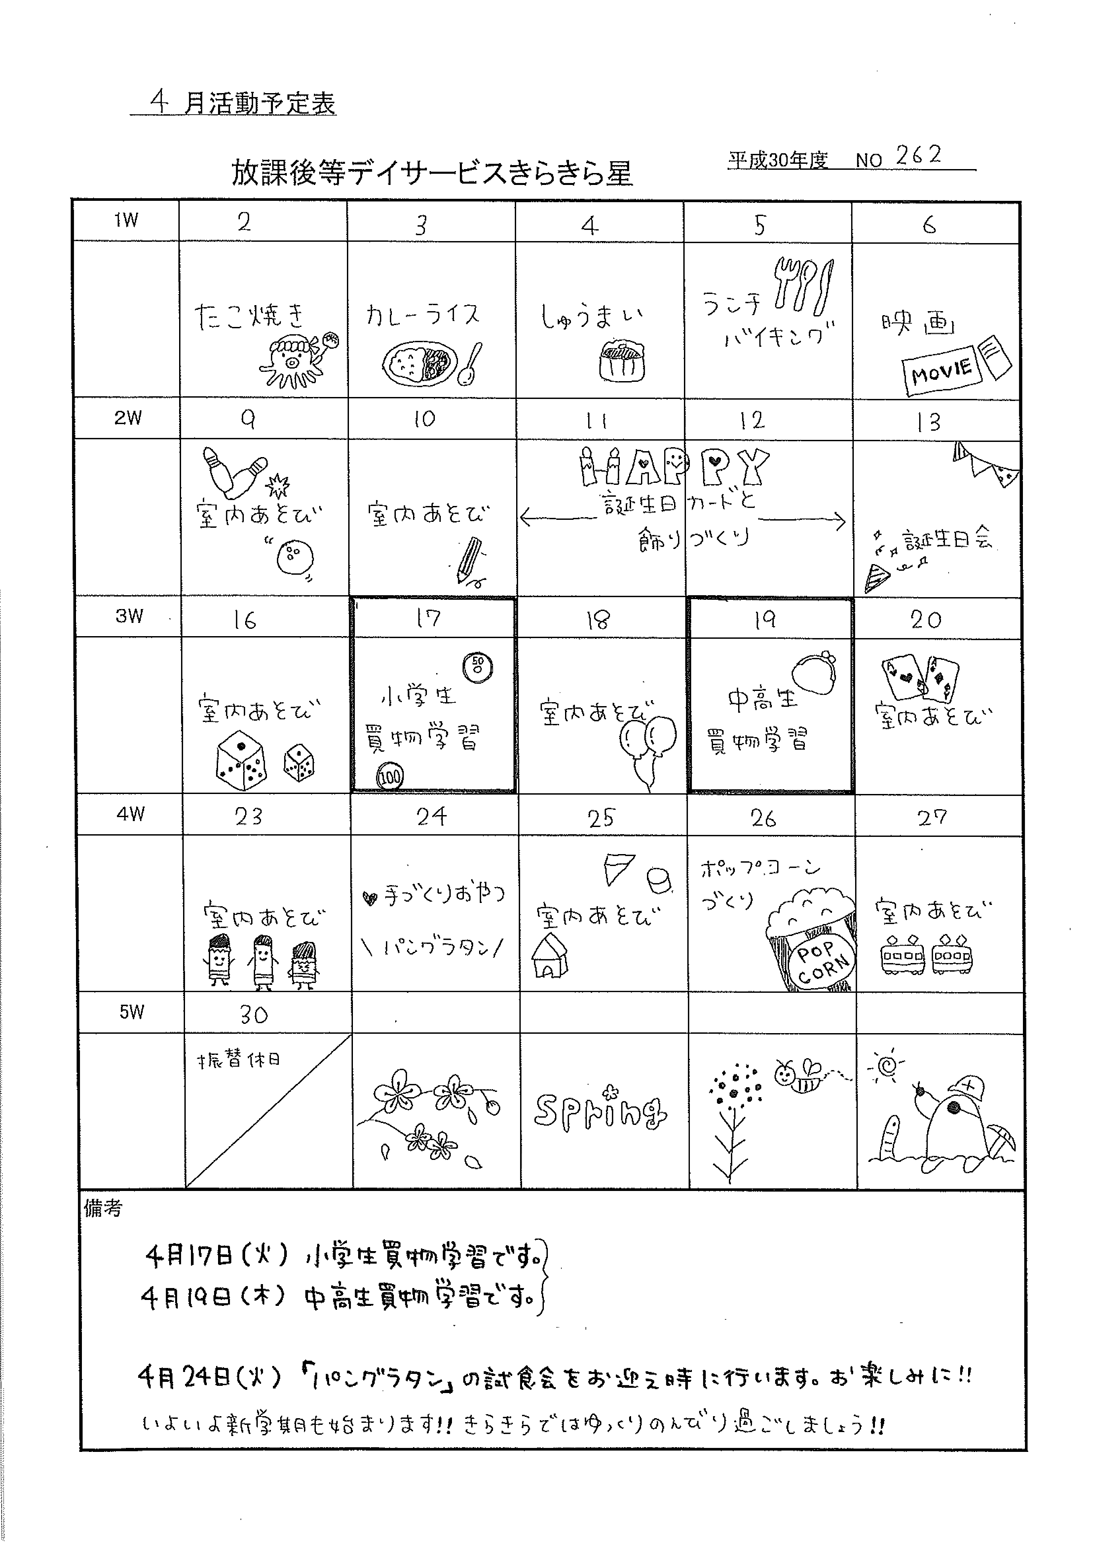 4 月活動予定表
放課後等デイサービスきらきら星
平成30年度 NO 262
1W 2 3 4 5 6
たこ焼き
カレーライス
しゅうまい
ランチ
バイキング
映画
MOVIE
2W 9 10 11 12 13
室内あそび
室内あそび
HAPPY
誕生日カードと
飾りづくり
誕生日会
3W 16 17 18 19 20
室内あそび
50
小学生
買物学習
100
室内あそび
中高生
買物学習
A A
室内あそび
4W 23 24 25 26 27
室内あそび
手づくりおやつ
\ パングラタン /
室内あそび
ポップコーン
づくり
POP
CORN
室内あそび
5W 30
振替休日
spring
備考
4月17日(火) 小学生買物学習です。
4月19日(木) 中高生買物学習です。
4月24日(火) 「パングラタン」の試食会をお迎え時に行います。お楽しみに!!
いよいよ新学期も始まります!! きらきらではゆっくりのんびり過ごしましょう!!